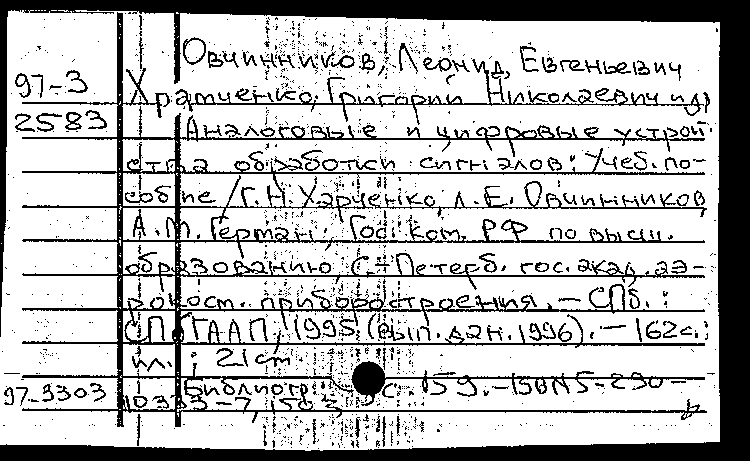 Овчинников, Леонид, Евгеньевич
97-3 Храмченко, Григорий Николаевич и др
2583 Аналоговые и цифровые устрой
ства обработки сигналов: Учеб. по-
собие / Г.Н. Харченко, Л.Е. Овчинников,
А.М. Герман; Гос. ком. РФ по высш.
образованию, С.-Петерб. гос. акад. аэ-
рокосм. приборостроения. - СПб.:
СПбГААП, 1995 (вып. дан. 1996). - 162с.:
ил.; 21 cm
Библиогр.: с. 159. - ISBN 5-230-
97-3303 10333-7, 150